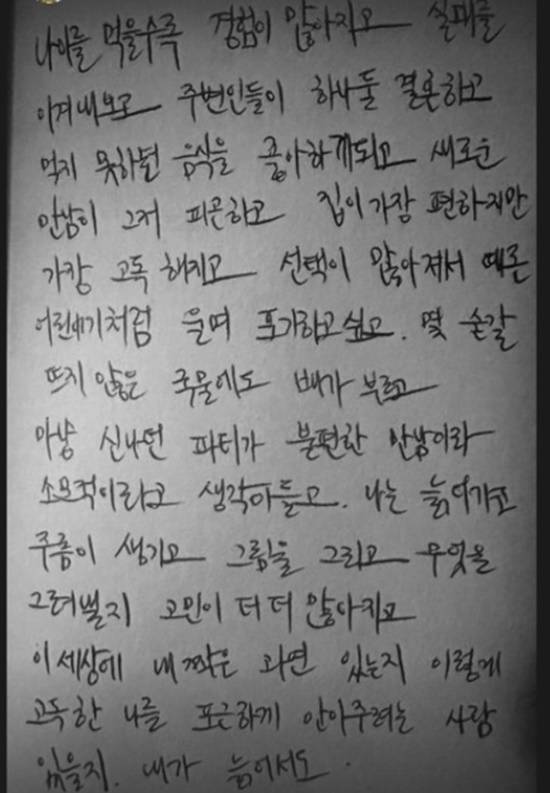 나이를 먹을수록 경험이 많아지고 실패를
이겨내보고 주변인들이 하나둘 결혼하고
먹지 못하던 음식을 좋아하게되고 새로운
만남이 그저 피곤하고 집이 가장 편하지만
가장 고독 해지고 선택이 많아져서 때론
어린애기처럼 울며 포기하고싶고. 몇 숟갈
뜨지 않은 국물에도 배가 부르고
마냥 신나던 파티가 불편한 만남이라
소모적이라고 생각이들고. 나는 늙어가고
주름이 생기고 그림을 그리고 무엇을
그려낼지 고민이 더 더 많아지고
이 세상에 내 짝은 과연 있는지 이렇게
고독한 나를 포근하게 안아주려는 사람
있을지. 내가 늙어서도.